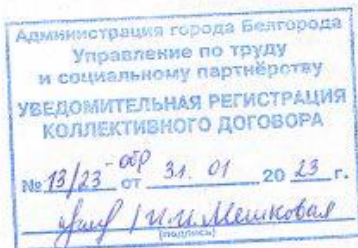 Администрация города Белгорода
Управление по труду
и социальному партнёрству
УВЕДОМИТЕЛЬНАЯ РЕГИСТРАЦИЯ
КОЛЛЕКТИВНОГО ДОГОВОРА
№ 13/23-обр от 31. 01 20 23 г.
/ И.И. Мешкова
(подпись)